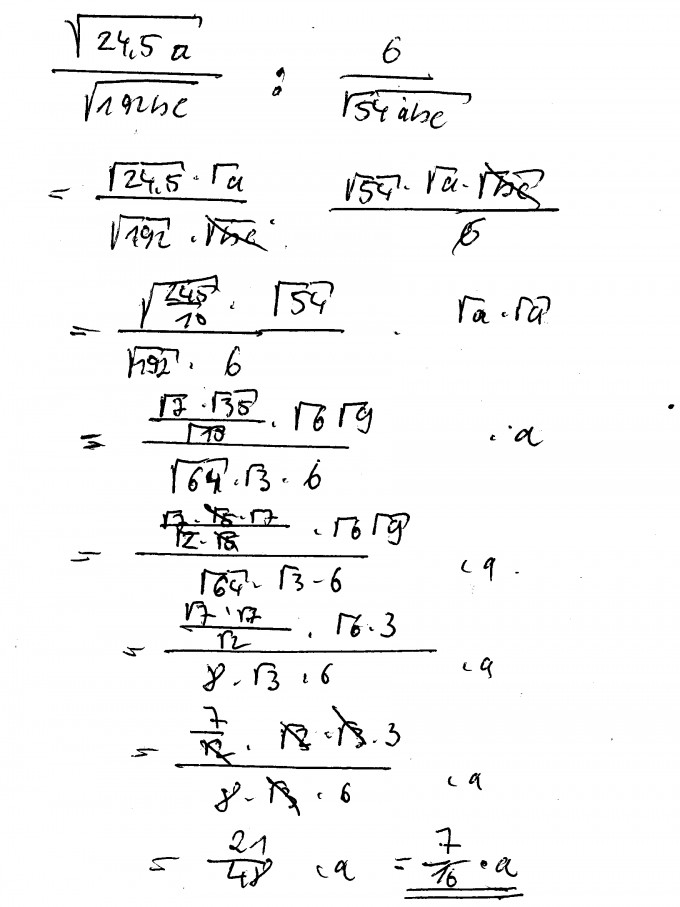 √24,5a / √192bc : 6 / √54abc
= √24,5 · √a / √192 · √bc · √54 · √a · √bc / 6
= √245/10 · √54 / √192 · 6 · √a · √a
= √7 · √35 / √10 · √6 √9 / √64 · √3 · 6 · a
= √7 · √5 · √7 / √2 · √5 · √6 √9 / √64 · √3 · 6 · a
= √7 · √7 / √2 · √6 · 3 / 8 · √3 · 6 · a
= 7 / √2 · √2 · √3 · 3 / 8 · √3 · 6 · a
= 21/48 · a = 7/16 · a